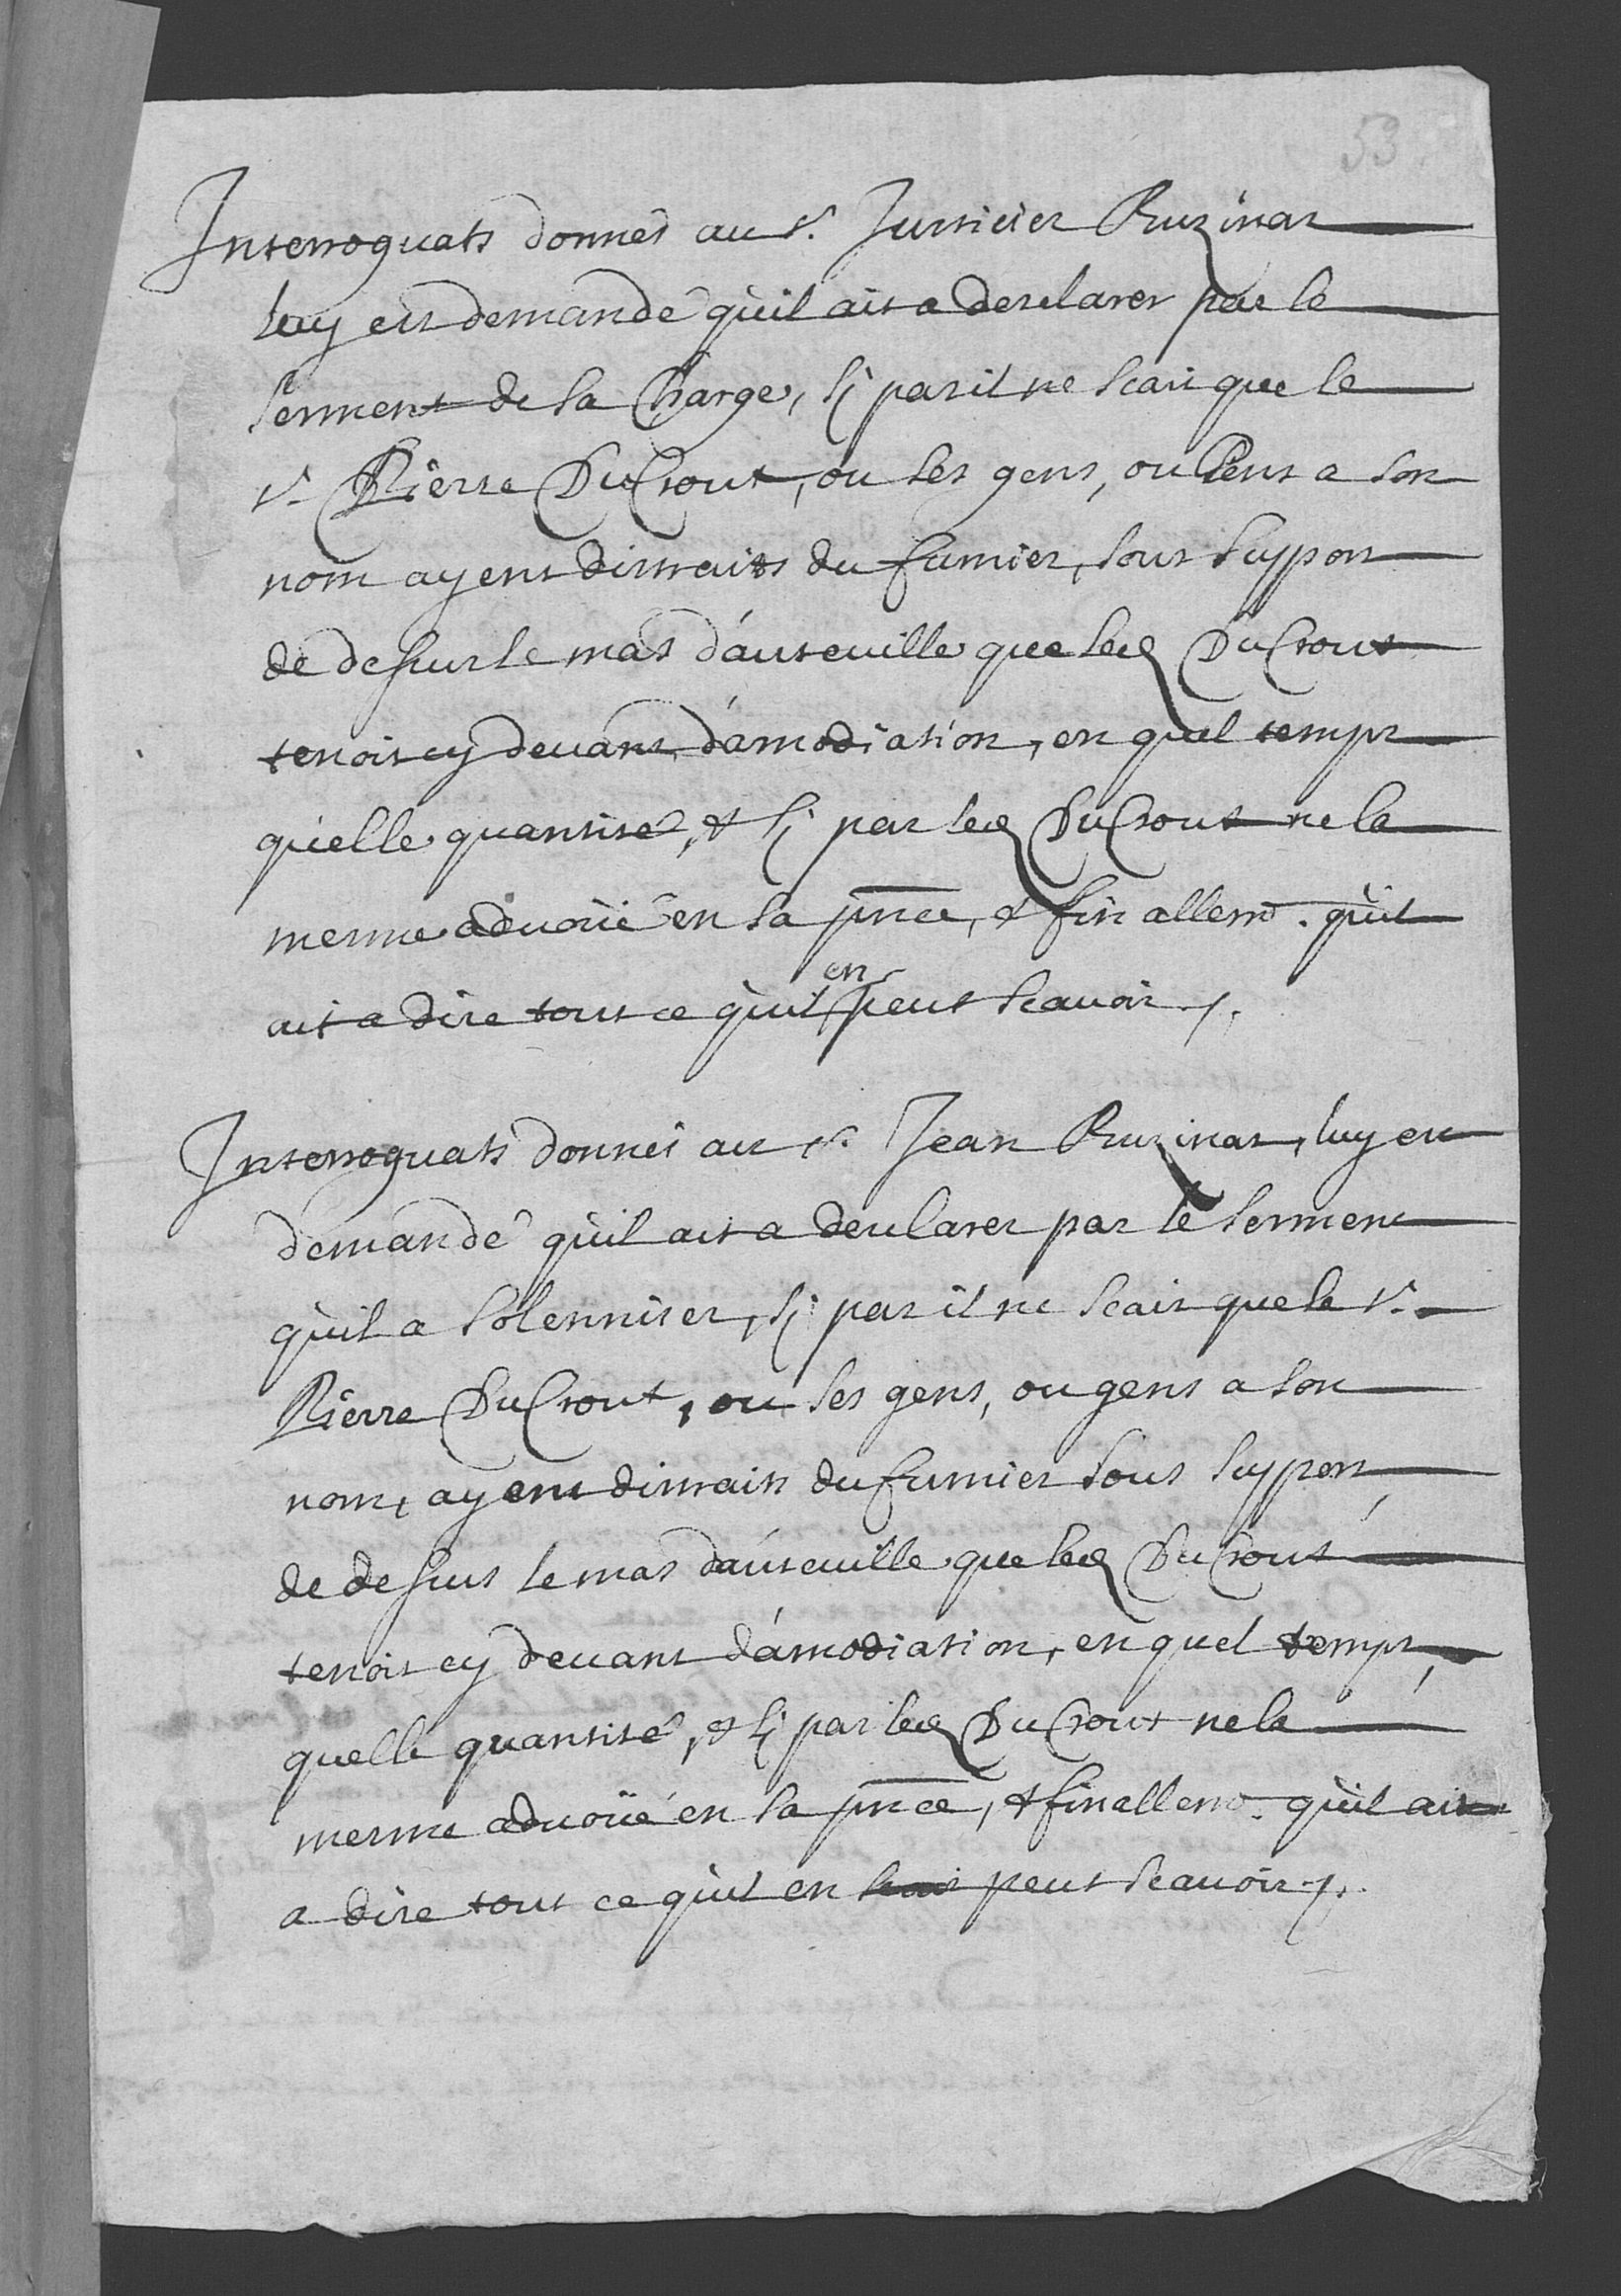 53
Interroguats donnés au s.r Justicier Ruzinar
luy est demandé qu'il ait a desclarer par le
serment de sa Charge, si pas il ne scait que le
s.r Pierre DuCrout, ou ses gens, ou Gens a son
nom ayent distraits du fumier, sous suppost
de dessus le mas d'auteuille que led DuCrout
tenoit cy devant d'amodiation, en quel temps
qu'elle quantité, & si pas led DuCrout ne la
mesme advoüé en sa pnce, & finallem. qu'il
ait a dire tout ce qu'il en peut scavoir /.
Interroguats donnés au s.r Jean Ruzinar, luy est
demandé qu'il ait a desclarer par le serment
qu'il a solenniser, si pas il ne scait que le s.r
Pierre DuCrout, ou ses gens, ou gens a son
nom, ayent distraits du fumier sous suppost,
de dessus le mas d'auteuille que led DuCrout
tenoit cy devant d'amodiation, en quel temps,
quelle quantité, & si pas led DuCrout ne la
mesme advoüé en sa pnce, & finallem. qu'il ait
a dire tout ce qu'il en peut scavoir /.